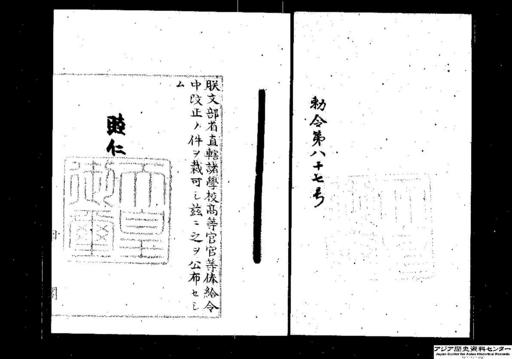 勅令第八十七号
朕文部省直轄諸學校高等官官等俸給令
中改正ノ件ヲ裁可シ茲ニ之ヲ公布セシ
ム
睦仁
天皇
御璽
アジア歴史資料センター
Japan Center for Asian Historical Records